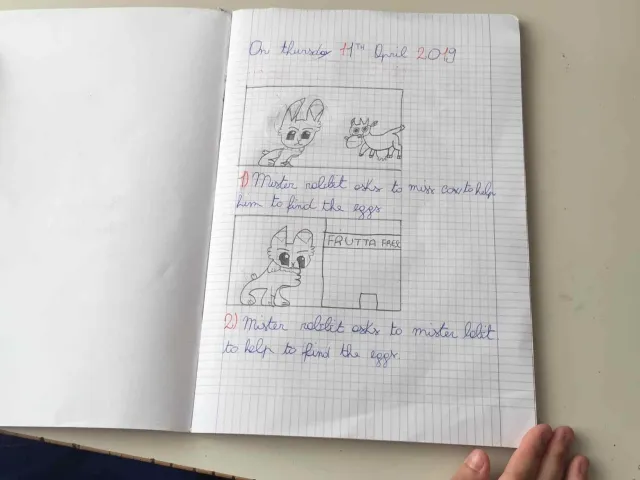 On thursday 11TH April 2019
1) Mister rabbit asks to miss cow to help
him to find the eggs
FRUTTA FREE
2) Mister rabbit asks to mister
to help to find the eggs.